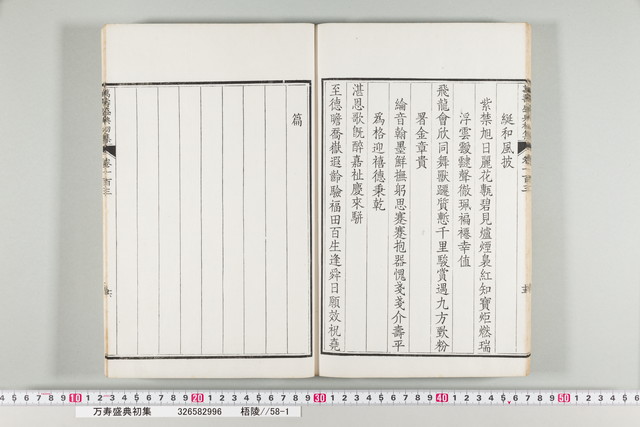 綖和風披
紫禁旭日麗花甎碧見爐煙裊紅知寶炬燃瑞
浮雲靉靆聲徹珮褊褼幸值
飛龍會欣同舞獸躚質慙千里駿賞遇九方歅粉
署金章貴
綸音翰墨鮮撫躬思蹇蹇抱器愧戔戔介壽平
為格迎禧德秉乾
湛恩歌旣醉嘉祉慶來駢
至德瞻喬嶽遐齡驗福田百生逢舜日願效祝堯
篇
卷一百三
萬壽盛典初集
卷一百三
万寿盛典初集 326582996 梧陵//58-1
10 20 30 40 50